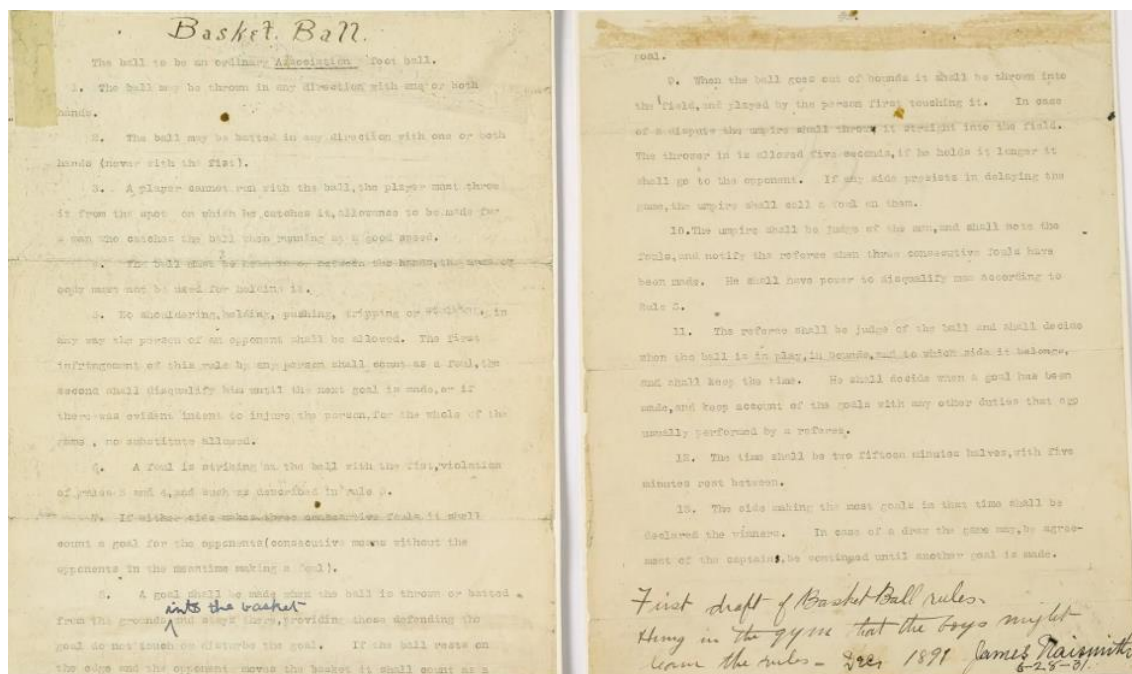 Basket Ball.
The ball to be an ordinary Association foot ball.
1. The ball may be thrown in any direction with one or both
hands.
2. The ball may be batted in any direction with one or both
hands (never with the fist).
3. A player cannot run with the ball, the player must throw
it from the spot on which he catches it, allowance to be made for
a man who catches the ball when running at a good speed.
4. The ball must be held in or between the hands, the arms or
body must not be used for holding it.
5. No shouldering, holding, pushing, tripping or striking in
any way the person of an opponent shall be allowed. The first
infringement of this rule by any person shall count as a foul, the
second shall disqualify him until the next goal is made, or if
there was evident intent to injure the person, for the whole of the
game, no substitute allowed.
6. A foul is striking at the ball with the fist, violation
of rules 3 and 4, and such as described in rule 5.
7. If either side makes three consecutive fouls it shall
count a goal for the opponents (consecutive means without the
opponents in the meantime making a foul).
8. A goal shall be made when the ball is thrown or batted
into the basket
from the grounds and stays there, providing those defending the
goal do not touch or disturbe the goal. If the ball rests on
the edge and the opponent moves the basket it shall count as a
goal.
9. When the ball goes out of bounds it shall be thrown into
the field, and played by the person first touching it. In case
of a dispute the umpire shall throw it straight into the field.
The thrower in is allowed five seconds, if he holds it longer it
shall go to the opponent. If any side presists in delaying the
game, the umpire shall call a foul on them.
10. The umpire shall be judge of the men, and shall note the
fouls, and notify the referee when three consecutive fouls have
been made. He shall have power to disqualify men according to
Rule 5.
11. The referee shall be judge of the ball and shall decide
when the ball is in play, in bounds, and to which side it belongs,
and shall keep the time. He shall decide when a goal has been
made, and keep account of the goals with any other duties that
usually performed by a referee.
12. The time shall be two fifteen minutes halves, with five
minutes rest between.
13. The side making the most goals in that time shall be
declared the winners. In case of a draw the game may, be agree-
ment of the captains, be continued until another goal is made.
First draft of Basket Ball rules.
Hung in the gym that the boys might
learn the rules - Dec. 1891 James Naismith
6-28-31.